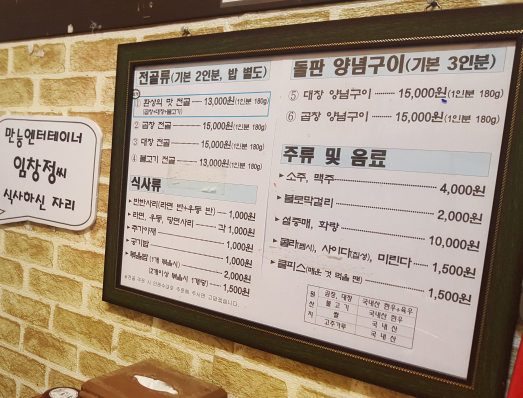 만능엔터테이너
임창정씨
식사하신 자리
전골류(기본 2인분, 밥 별도)
① 환상의 맛 전골 13,000원(1인분 180g)
(곱창+대창+불고기)
② 곱창 전골 15,000원(1인분 180g)
③ 대창 전골 15,000원(1인분 180g)
④ 불고기 전골 13,000원(1인분 180g)
식사류
▸반반사리(라면 반+우동 반) 1,000원
▸라면, 우동, 당면사리 각 1,000원
▸추가야채 1,000원
▸공기밥 1,000원
▸볶음밥(1개 볶음시) 2,000원
(2개이상 볶음시 1개당) 1,500원
돌판 양념구이(기본 3인분)
⑤ 대창 양념구이 15,000원(1인분 180g)
⑥ 곱창 양념구이 15,000원(1인분 180g)
주류 및 음료
▸소주, 맥주 4,000원
▸불로막걸리 2,000원
▸설중매, 화랑 10,000원
▸콜라(펩시), 사이다(칠성), 미린다 1,500원
▸쿨피스(매운 것 먹을 땐) 1,500원
원산지
곱창, 대창 국내산 한우+육우
불고기 국내산 한우
쌀 국내산
고추가루 국내산